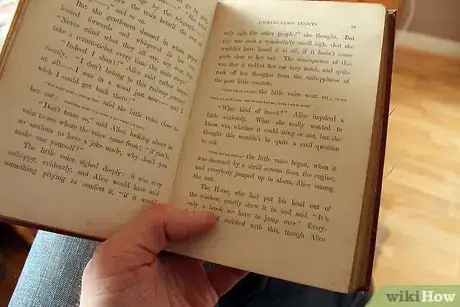 But the gentleman dressed in white paper
leaned forward and whispered in her
"Never mind what they all say, my dear, but
take a return-ticket every time the train stops."
"Indeed I shan't!" Alice said rather impa-
tiently. "I don't belong to this railway journey
at all—I was in a wood just now—and I
wish I could get back there!"
said the little voice close to
her ear
"Don't tease so," said Alice, looking about in
vain to see where the voice came from; "if you're
so anxious to have a joke made, why don't you
make one yourself?"
The little voice sighed deeply: it was very
unhappy, evidently, and Alice would have said
something pitying to comfort it, "if it would
LOOKING-GLASS INSECTS.
only sigh like other people!" she thought. But
this was such a wonderfully small sigh, that she
wouldn't have heard it at all, if it hadn't come
quite close to her ear. The consequence of this
was that it tickled her ear very much, and quite
took off her thoughts from the unhappiness of
the poor little creature.
the little voice went on
"What kind of insect?" Alice inquired a
little anxiously. What she really wanted to
know was, whether it could sting or not, but she
thought this wouldn't be quite a civil question
to ask.
the little voice began, when it
was drowned by a shrill scream from the engine,
and everybody jumped up in alarm, Alice among
the rest.
The Horse, who had put his head out of
the window, quietly drew it in and said, "It's
only a brook we have to jump over." Every-
satisfied with this, though Alice
wikiHow